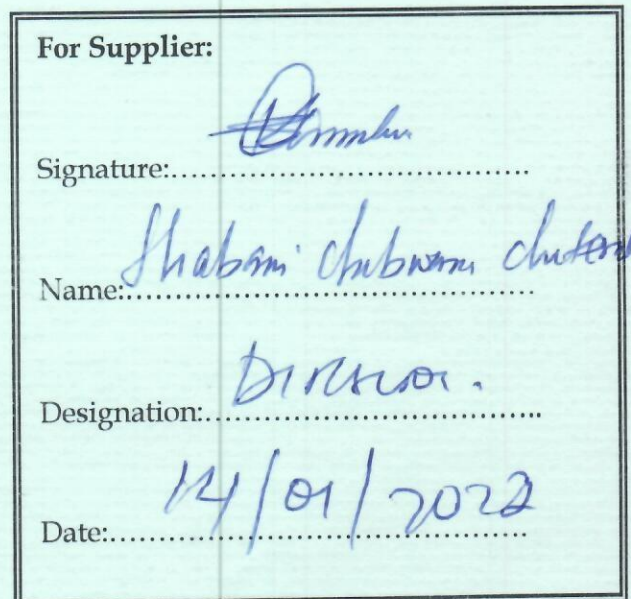 For Supplier:
Signature:
Name: Shabani
Designation: Director.
Date: 14/01/2022